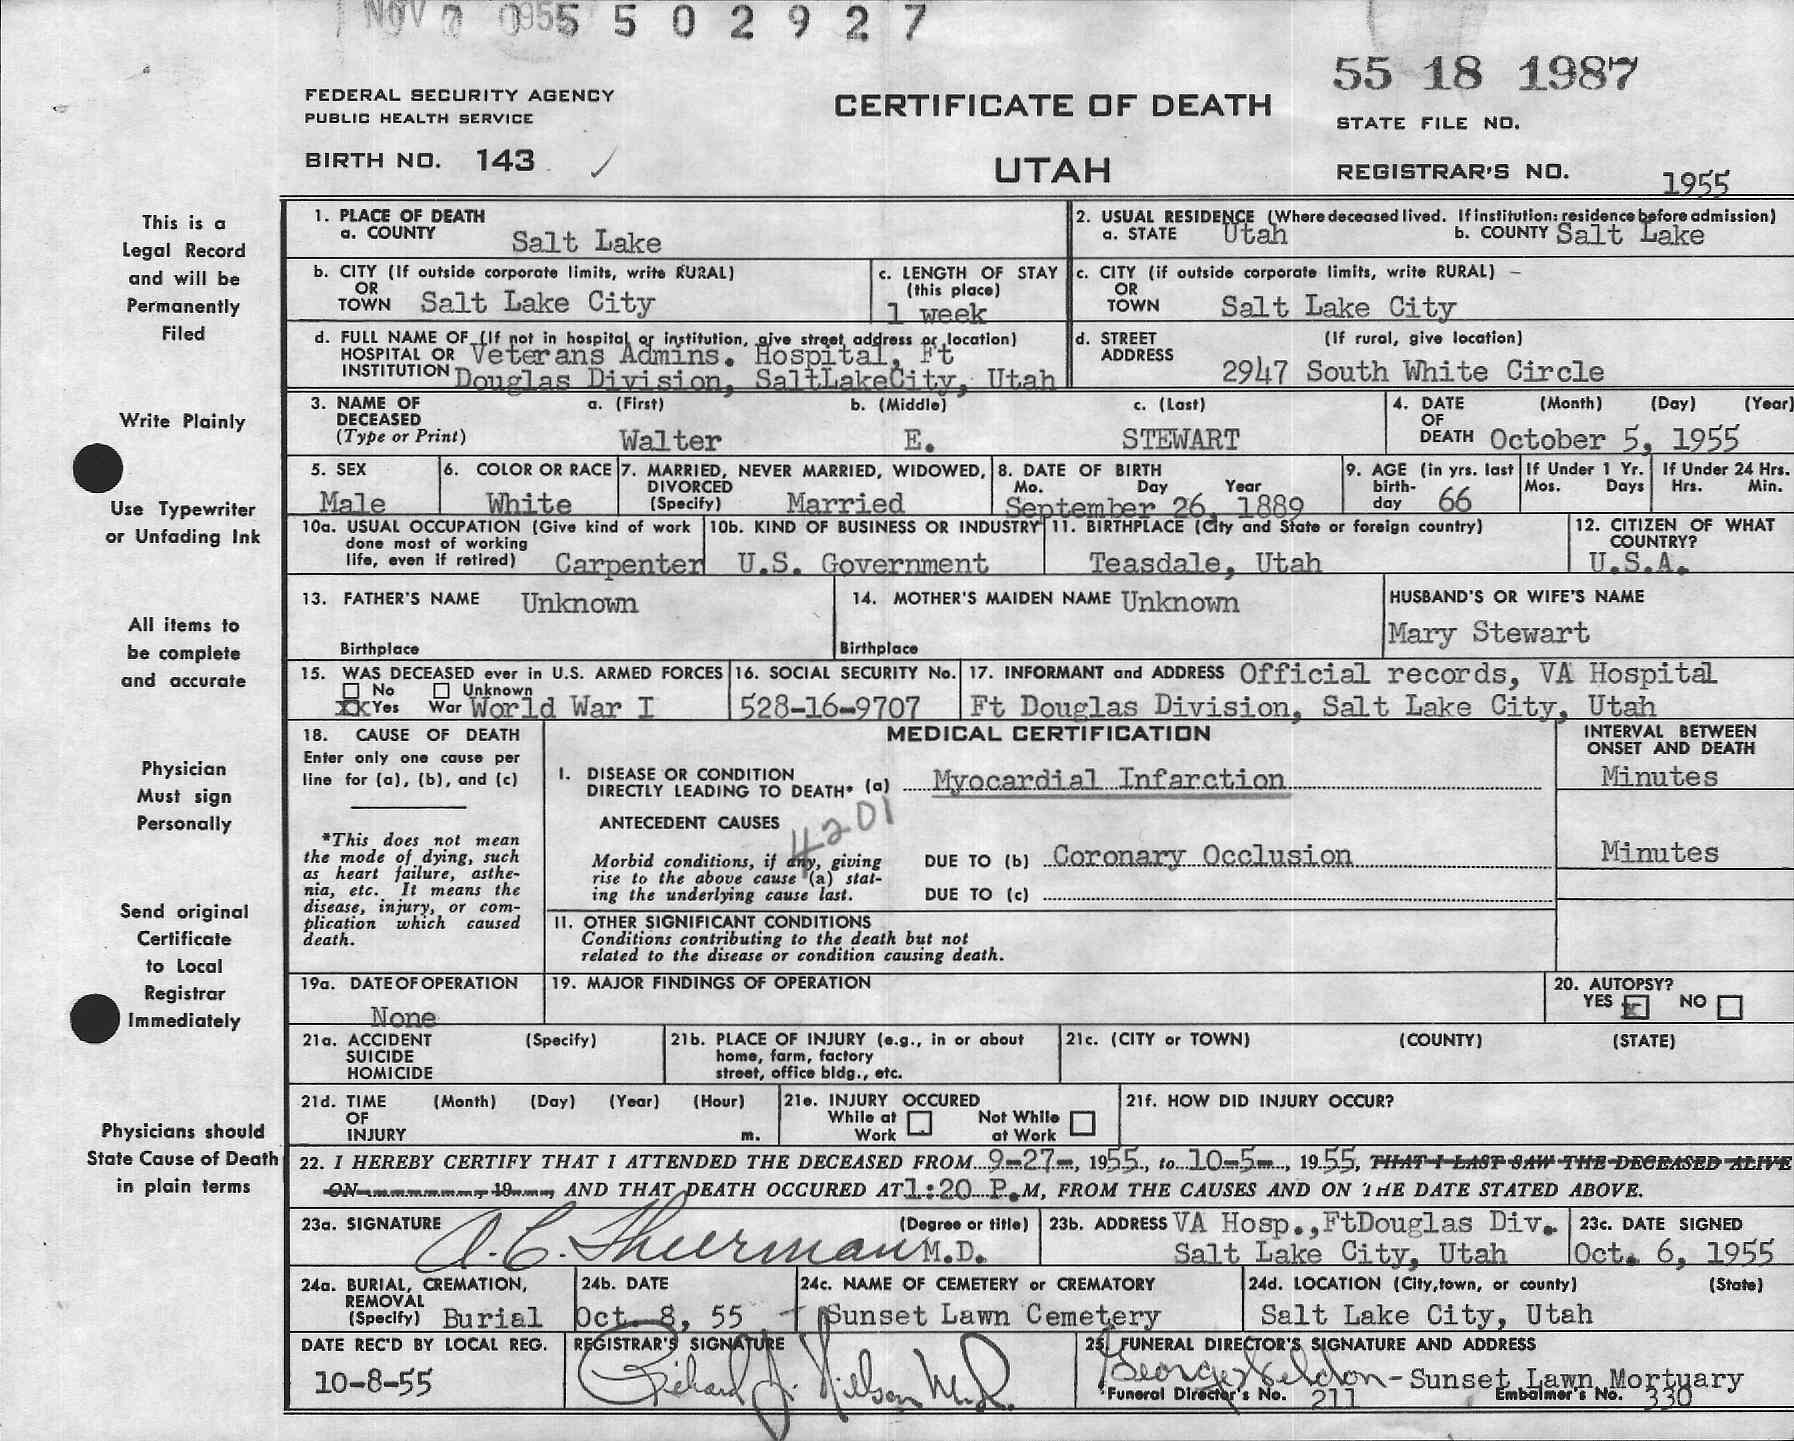 NOV 1955 5 5 0 2 9 2 7
55 18 1987
FEDERAL SECURITY AGENCY
PUBLIC HEALTH SERVICE
CERTIFICATE OF DEATH
STATE FILE NO.
BIRTH NO. 143
UTAH
REGISTRAR'S NO. 1955
This is a
Legal Record
and will be
Permanently
Filed
Write Plainly
Use Typewriter
or Unfading Ink
All items to
be complete
and accurate
Physician
Must sign
Personally
Send original
Certificate
to Local
Registrar
Immediately
Physicians should
State Cause of Death
in plain terms
1. PLACE OF DEATH
a. COUNTY Salt Lake
2. USUAL RESIDENCE (Where deceased lived. If institution: residence before admission)
a. STATE Utah b. COUNTY Salt Lake
b. CITY (If outside corporate limits, write RURAL)
OR
TOWN Salt Lake City
c. LENGTH OF STAY
(this place)
1 week
c. CITY (if outside corporate limits, write RURAL) -
OR
TOWN Salt Lake City
d. FULL NAME OF (If not in hospital or institution, give street address or location)
HOSPITAL OR Veterans Admins. Hospital, Ft
INSTITUTION Douglas Division, SaltLakeCity, Utah
d. STREET (If rural, give location)
ADDRESS
2947 South White Circle
3. NAME OF a. (First) b. (Middle) c. (Last)
DECEASED
(Type or Print) Walter E. STEWART
4. DATE (Month) (Day) (Year)
OF
DEATH October 5, 1955
5. SEX
Male
6. COLOR OR RACE
White
7. MARRIED, NEVER MARRIED, WIDOWED,
DIVORCED
(Specify) Married
8. DATE OF BIRTH
Mo. Day Year
September 26, 1889
9. AGE (in yrs. last
birth-
day 66
If Under 1 Yr.
Mos. Days
If Under 24 Hrs.
Hrs. Min.
10a. USUAL OCCUPATION (Give kind of work
done most of working
life, even if retired) Carpenter
10b. KIND OF BUSINESS OR INDUSTRY
U.S. Government
11. BIRTHPLACE (City and State or foreign country)
Teasdale, Utah
12. CITIZEN OF WHAT
COUNTRY?
U.S.A.
13. FATHER'S NAME Unknown
Birthplace
14. MOTHER'S MAIDEN NAME Unknown
Birthplace
HUSBAND'S OR WIFE'S NAME
Mary Stewart
15. WAS DECEASED ever in U.S. ARMED FORCES
No Unknown
xx Yes War World War I
16. SOCIAL SECURITY No.
528-16-9707
17. INFORMANT and ADDRESS Official records, VA Hospital
Ft Douglas Division, Salt Lake City, Utah
18. CAUSE OF DEATH
Enter only one cause per
line for (a), (b), and (c)
*This does not mean
the mode of dying, such
as heart failure, asthe-
nia, etc. It means the
disease, injury, or com-
plication which caused
death.
MEDICAL CERTIFICATION
INTERVAL BETWEEN
ONSET AND DEATH
I. DISEASE OR CONDITION
DIRECTLY LEADING TO DEATH* (a) Myocardial Infarction Minutes
ANTECEDENT CAUSES
4201
Morbid conditions, if any, giving
rise to the above cause (a) stat-
ing the underlying cause last.
DUE TO (b) Coronary Occlusion Minutes
DUE TO (c)
II. OTHER SIGNIFICANT CONDITIONS
Conditions contributing to the death but not
related to the disease or condition causing death.
19a. DATE OF OPERATION
None
19. MAJOR FINDINGS OF OPERATION
20. AUTOPSY?
YES x NO
21a. ACCIDENT (Specify)
SUICIDE
HOMICIDE
21b. PLACE OF INJURY (e.g., in or about
home, farm, factory
street, office bldg., etc.
21c. (CITY or TOWN) (COUNTY) (STATE)
21d. TIME (Month) (Day) (Year) (Hour)
OF
INJURY m.
21e. INJURY OCCURED
While at Not While
Work at Work
21f. HOW DID INJURY OCCUR?
22. I HEREBY CERTIFY THAT I ATTENDED THE DECEASED FROM 9-27-, 1955, to 10-5-, 1955, THAT I LAST SAW THE DECEASED ALIVE
ON 19 , AND THAT DEATH OCCURED AT 1:20 P.M, FROM THE CAUSES AND ON THE DATE STATED ABOVE.
23a. SIGNATURE (Degree or title)
A. C. Sheerman M.D.
23b. ADDRESS VA Hosp.,FtDouglas Div.
Salt Lake City, Utah
23c. DATE SIGNED
Oct. 6, 1955
24a. BURIAL, CREMATION,
REMOVAL
(Specify) Burial
24b. DATE
Oct. 8, 55
24c. NAME OF CEMETERY or CREMATORY
Sunset Lawn Cemetery
24d. LOCATION (City,town, or county) (State)
Salt Lake City, Utah
DATE REC'D BY LOCAL REG.
10-8-55
REGISTRAR'S SIGNATURE
Richard J. Nilson M.D.
25. FUNERAL DIRECTOR'S SIGNATURE AND ADDRESS
George Seldon - Sunset Lawn Mortuary
Funeral Director's No. 211 Embalmer's No. 330